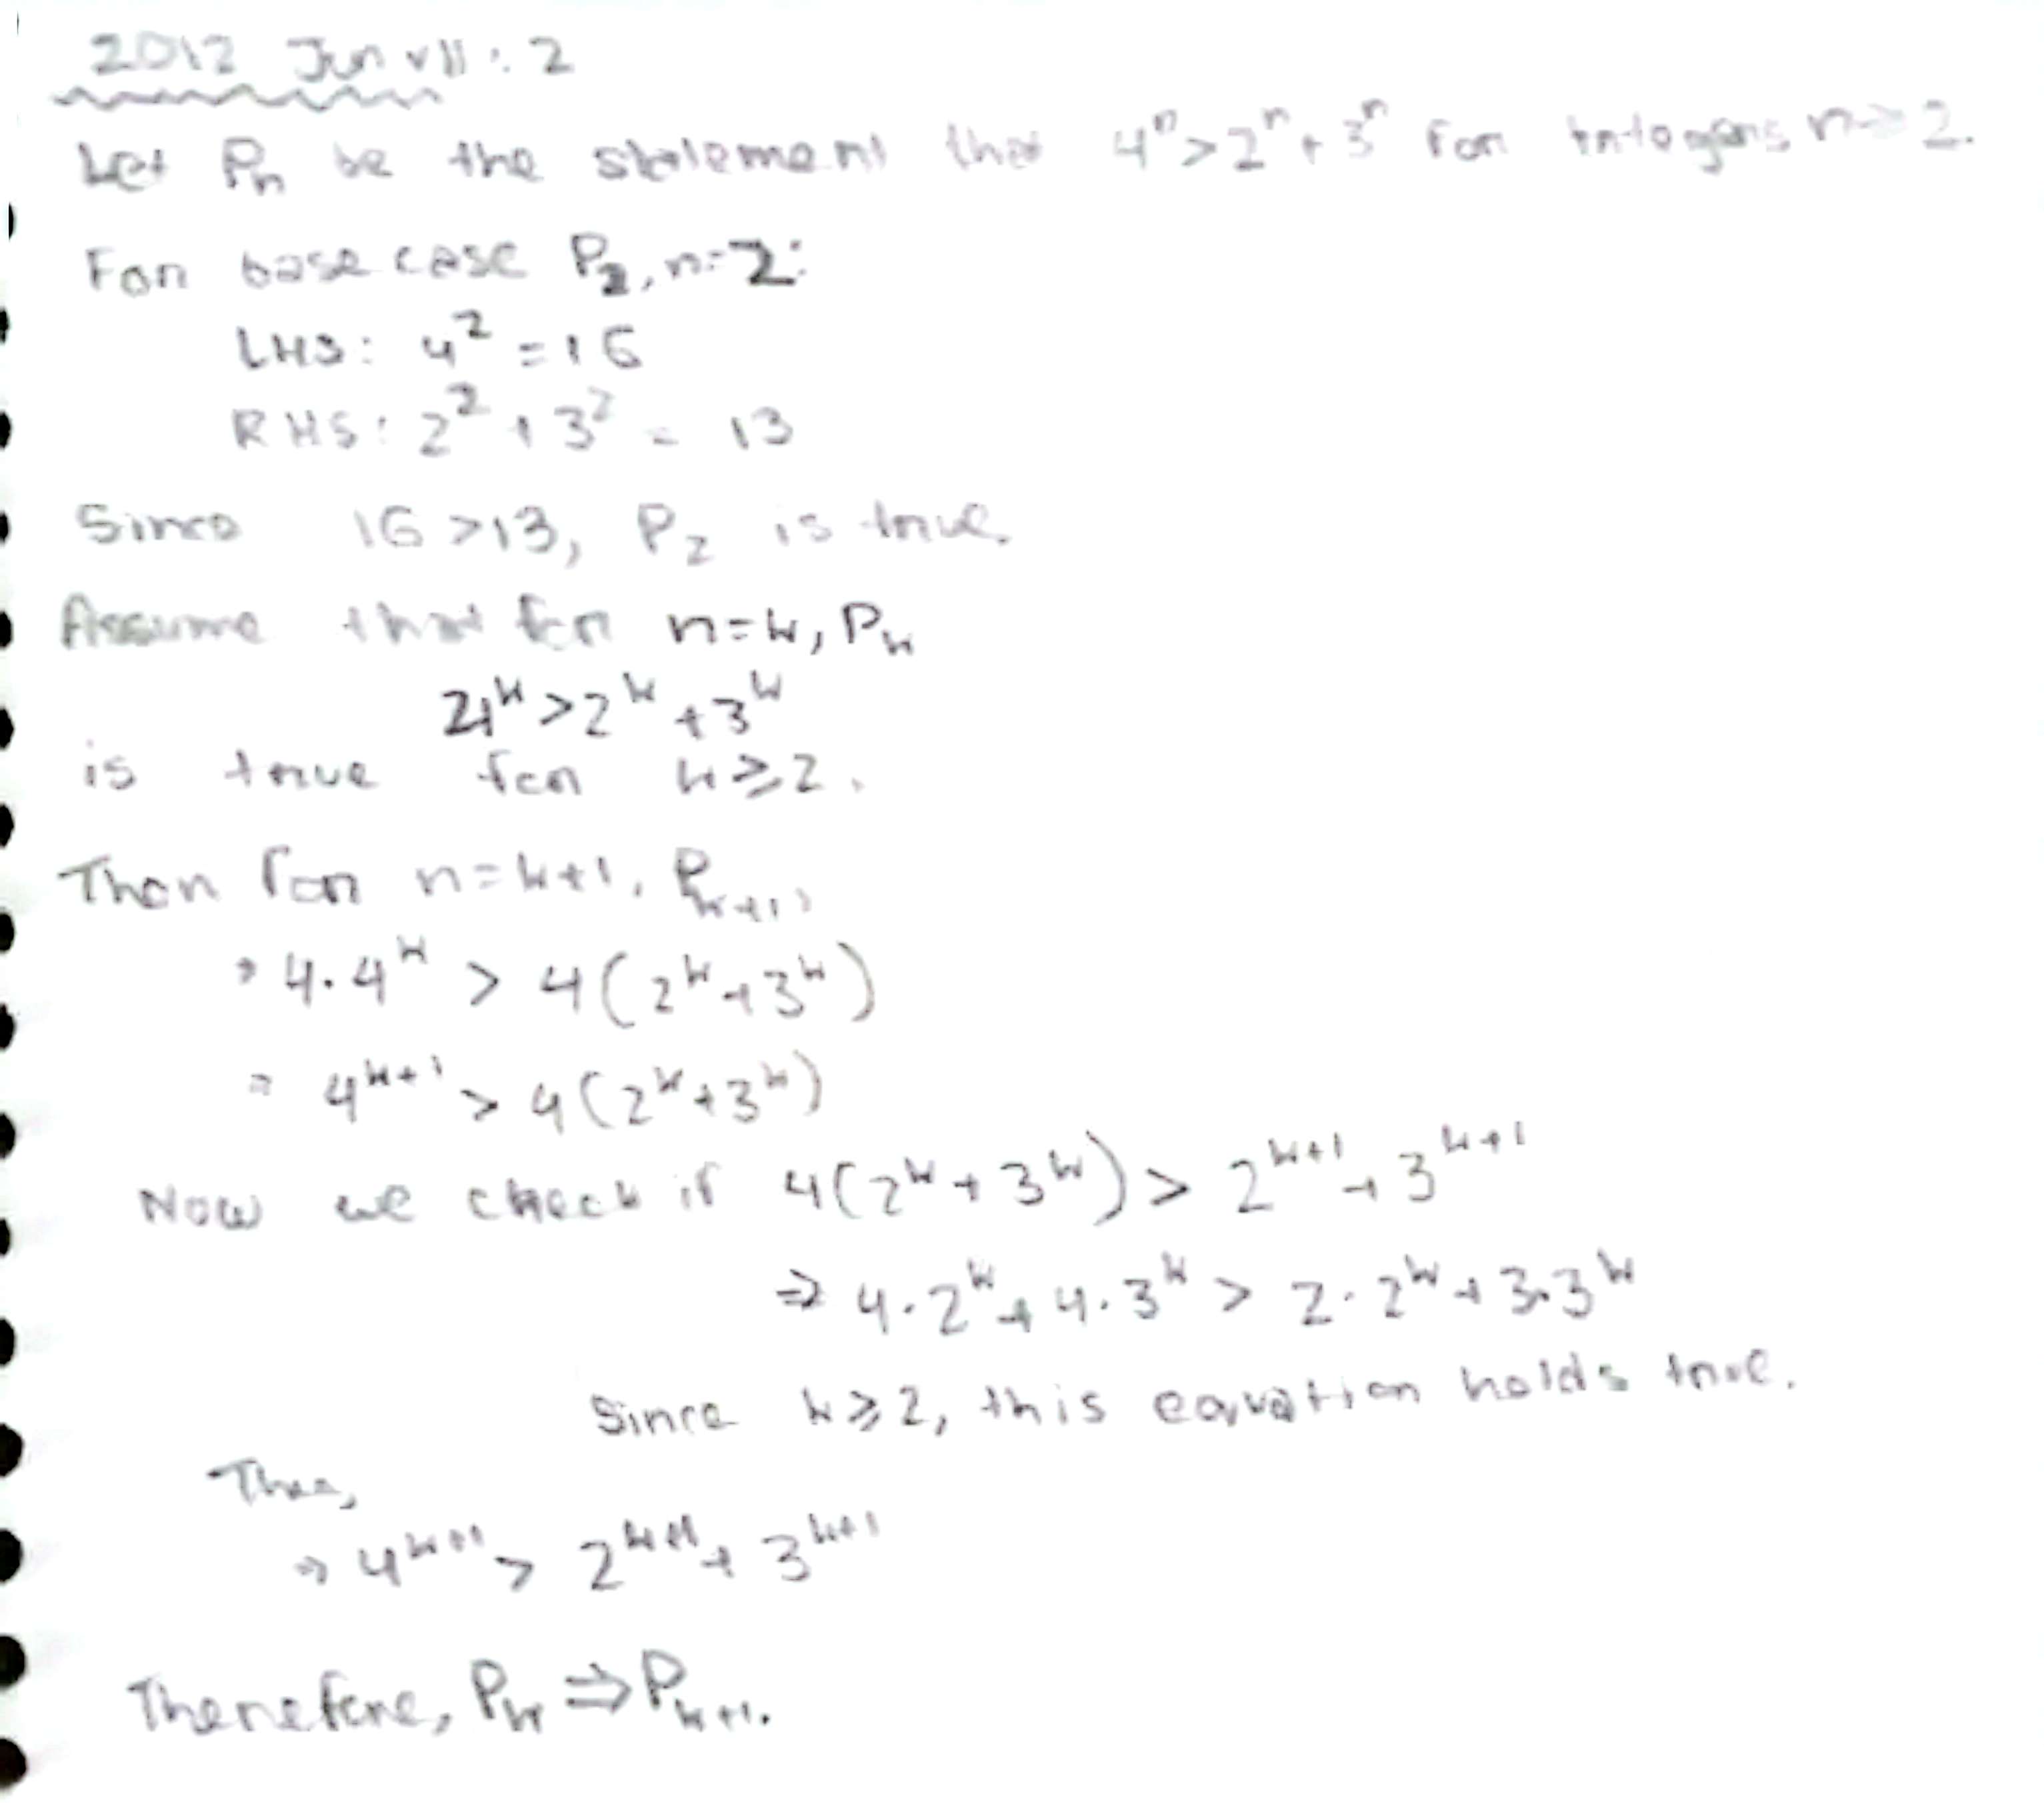 2012 Jun v11 : 2
Let Pn be the statement that 4ⁿ > 2ⁿ + 3ⁿ for integers n ≥ 2.
For base case P₂, n=2:
LHS: 4² = 16
RHS: 2² + 3² = 13
Since 16 > 13, P₂ is true.
Assume that for n=k, Pₖ
4ᵏ > 2ᵏ + 3ᵏ
is true for k ≥ 2.
Then for n=k+1, Pₖ₊₁,
⇒ 4·4ᵏ > 4(2ᵏ + 3ᵏ)
= 4ᵏ⁺¹ > 4(2ᵏ + 3ᵏ)
Now we check if 4(2ᵏ + 3ᵏ) > 2ᵏ⁺¹ + 3ᵏ⁺¹
⇒ 4·2ᵏ + 4·3ᵏ > 2·2ᵏ + 3·3ᵏ
Since k ≥ 2, this equation holds true.
⇒ 4ᵏ⁺¹ > 2ᵏ⁺¹ + 3ᵏ⁺¹
Therefore, Pₖ ⇒ Pₖ₊₁.